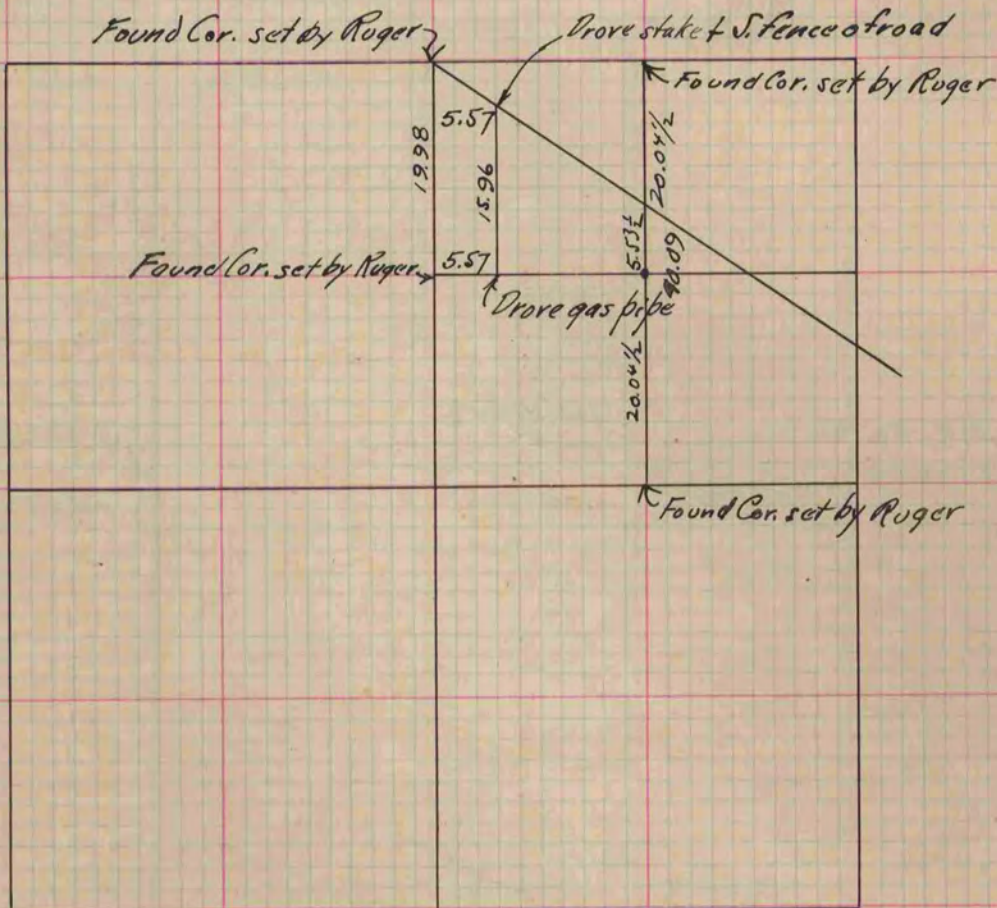 Found Cor. set by Ruger
Drove stake & S. fence of road
Found Cor. set by Ruger
5.57
19.98
15.96
20.04½
5.53½
40.09
Found Cor. set by Ruger
5.57
Drove gas pipe
20.04½
Found Cor. set by Ruger